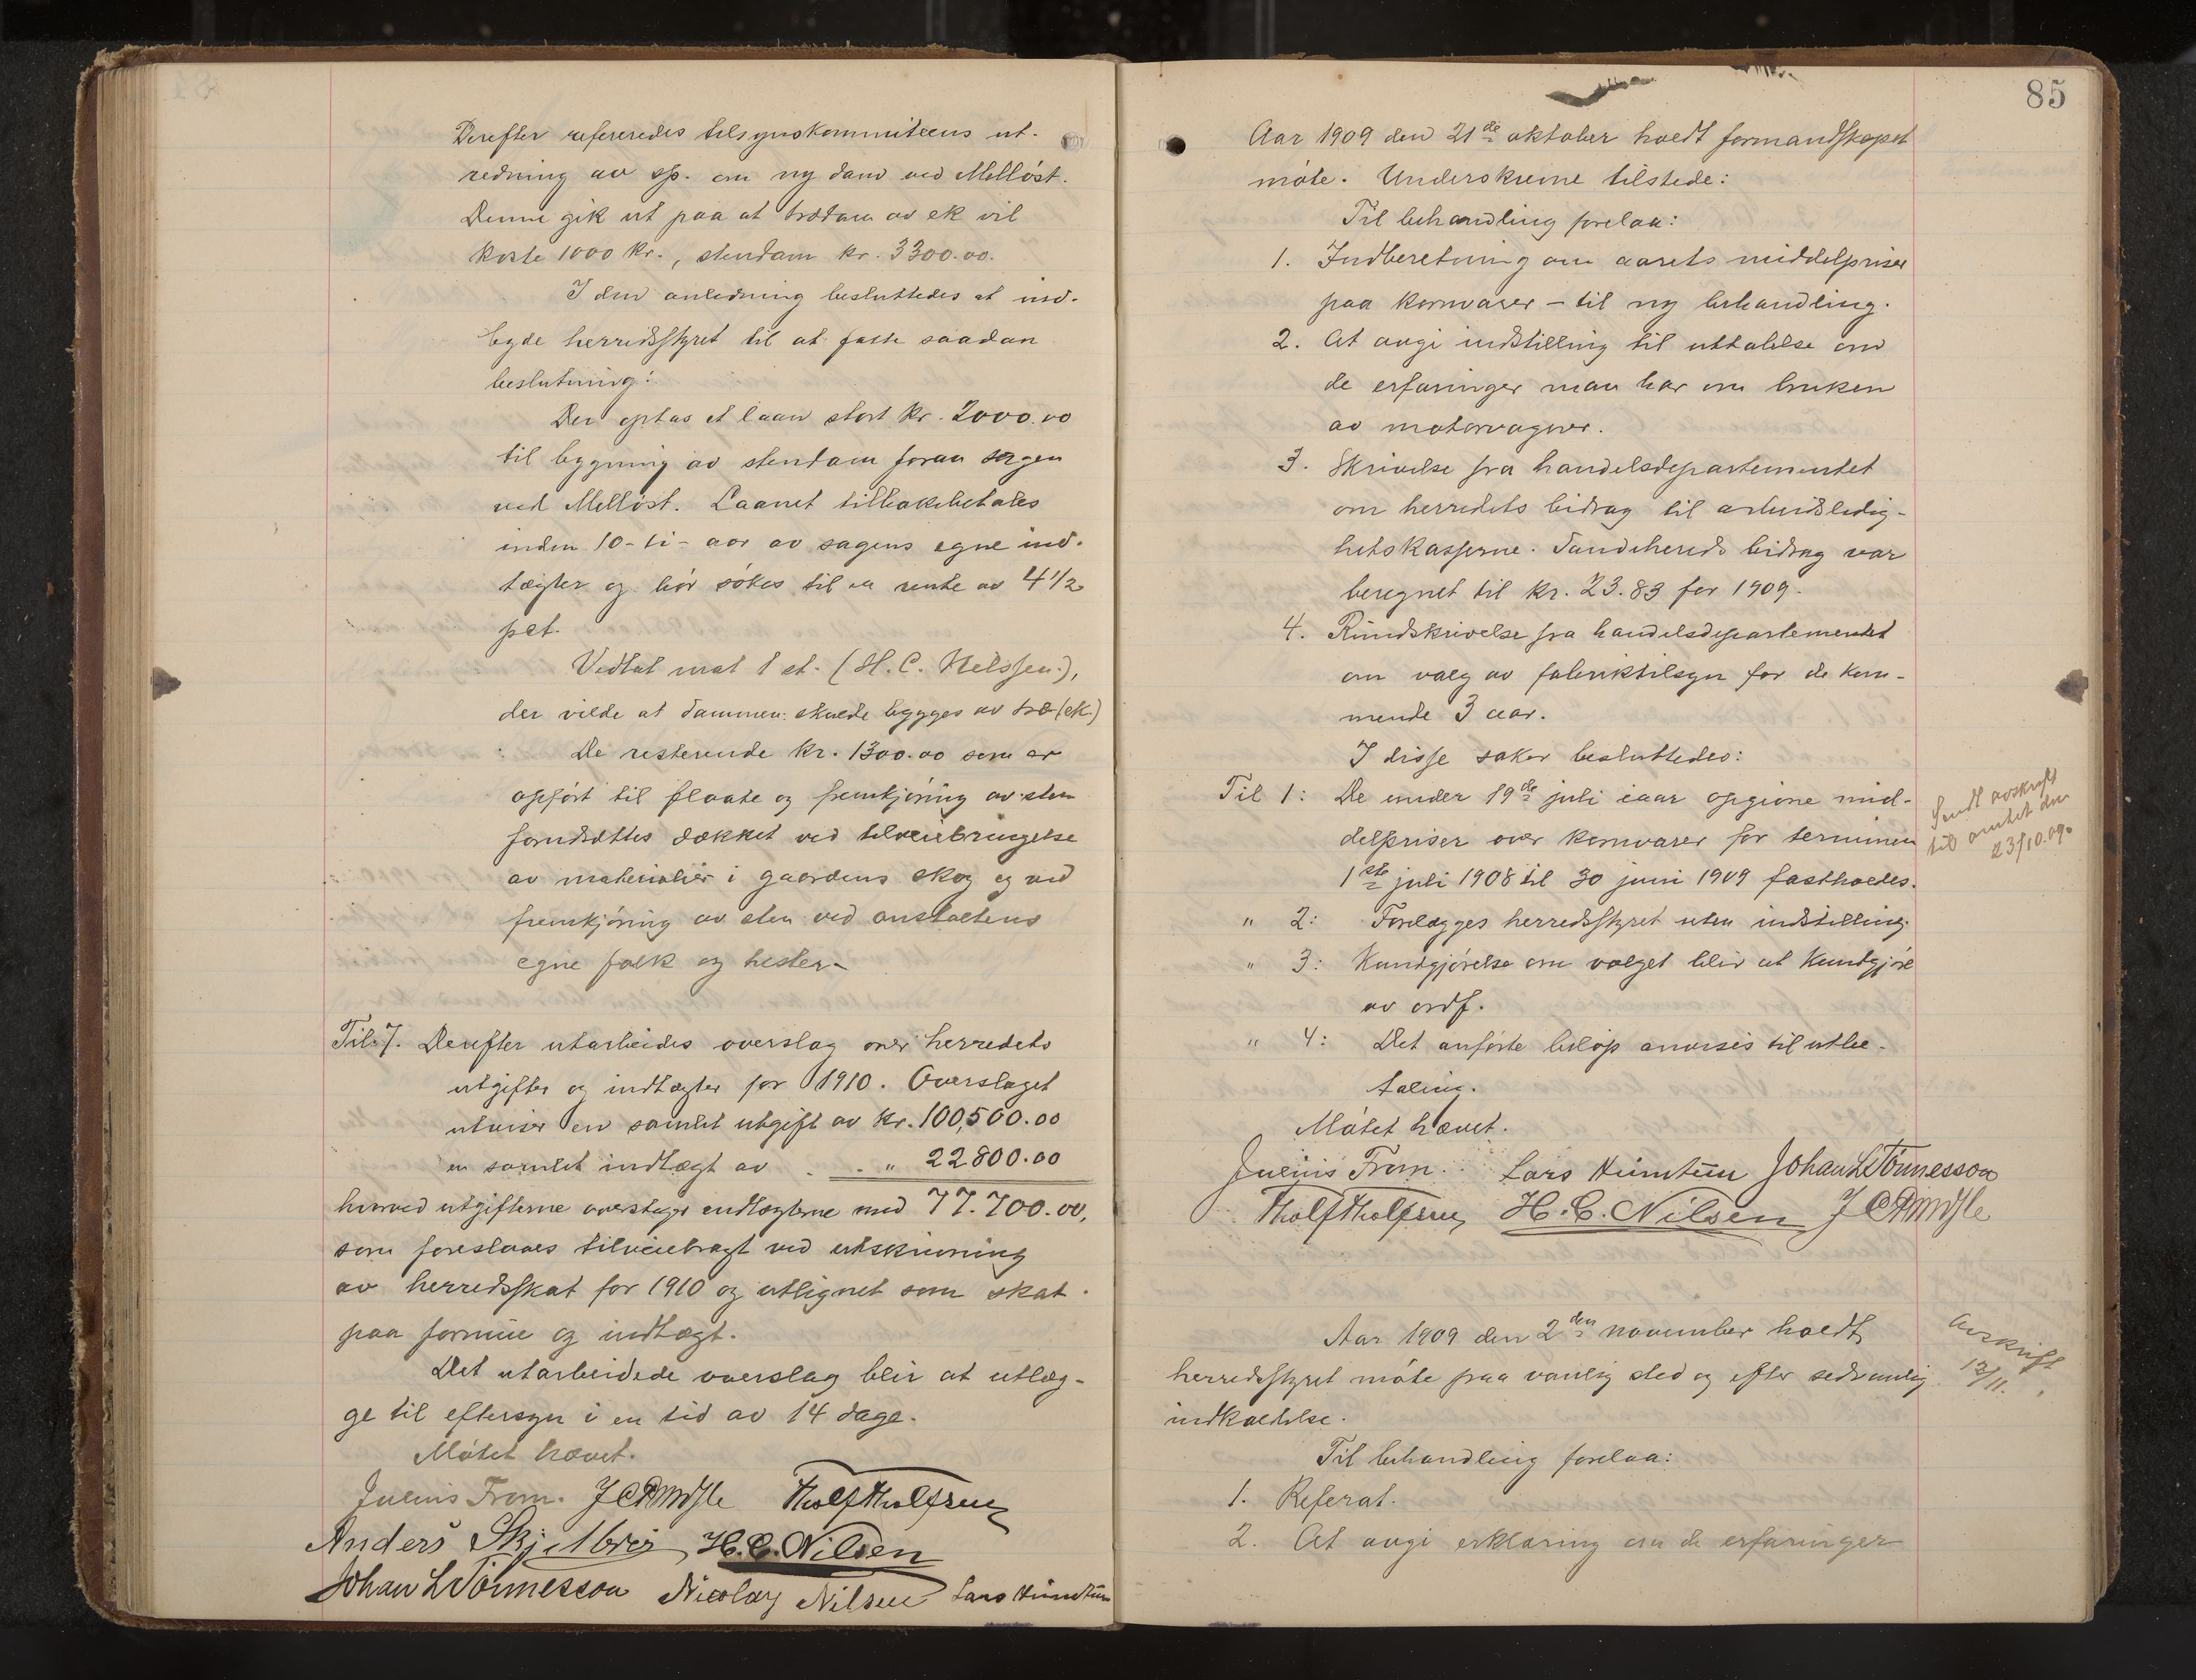 Derefter refereredes tilsynskommiteens ut-
redning av sp. om ny dam ved Melløst.
Denne gik ut paa at trædam av ek vil
koste 1000 kr., stendam kr. 3300.00.
I den anledning besluttedes at ind-
byde herredsstyret til at fatte saadan
beslutning:
Der optas et laan stort kr. 2000.00
til bygning av stendam foran sagen
ved Melløst. Laanet tilbakebetales
inden 10-ti- aar av sagens egne ind-
tægter og bör sökes til en rente av 4 1/2
pct.
Vedtat mot 1 st. (H. C. Nelssen.),
der vilde at dammen skulde bygges av træ (ek.)
De resterende kr. 1300.00 som er
opfört til flaate og fremkjöring av sten
forudsættes dækket ved tilveiebringelse
av materialier i gaardens skog og ved
fremkjöring av sten ved anstaltens
egne folk og hester.
Til 7. Derefter utarbeides overslag over herredets
utgifter og indtægter for 1910. Overslaget
utviser en samlet utgift av kr. 100,500.00
en samlet indtægt av . . " 22800.00
hvorved utgifterne overstiger indtægterne med 77.700.00,
som foreslaaes tilveiebragt ved utskrivning
av herredsskat for 1910 og utlignet som skat
paa formue og indtægt.
Det utarbeidede overslag blir at utlæg-
ge til eftersyn i en tid av 14 dage.
Mötet hævet.
Julius From.
Anders H. C. Nilsen
Johan L Tönnesson Nicolay Nilsen Lars
85
Aar 1909 den 21de oktober holdt formandskapet
möte. Underskrevne tilstede:
Til behandling forelaa:
1. Indberetning om aarets middelpriser
paa kornvarer – til ny behandling.
2. At avgi indstilling til uttalelse om
de erfaringer man har om bruken
av motorvogner.
3. Skrivelse fra handelsdepartementet
om herredets bidrag til arbeidsledig-
hetskasserne. Sandehereds bidrag var
beregnet til kr. 23.83 for 1909.
4. Rundskrivelse fra handelsdepartementet
om valg av fabriktilsyn for de kom-
mende 3 aar.
I disse saker besluttedes:
Til 1: De under 19de juli iaar opgivne mid-
delpriser over kornvarer for terminen
1ste juli 1908 til 30 juni 1909 fastholdes.
Sendt avskrift
til amtet den
23/10.09.
" 2: Forelægges herredsstyret uten indstilling.
" 3: Kundgjörelse om valget blir at kundgjöre
av ordf.
" 4: Det anförte belöp anvises til utbe-
taling.
Mötet hævet.
Julius From. Lars Johan L Tönnesson
H. C. Nilsen
Aar 1909 den 2den november holdt
herredsstyret möte paa vanlig sted og efter sedvanlig
indkaldelse.
Avskrift
12/11.
Til behandling forelaa:
1. Referat.
2. At avgi erklæring om de erfaringer